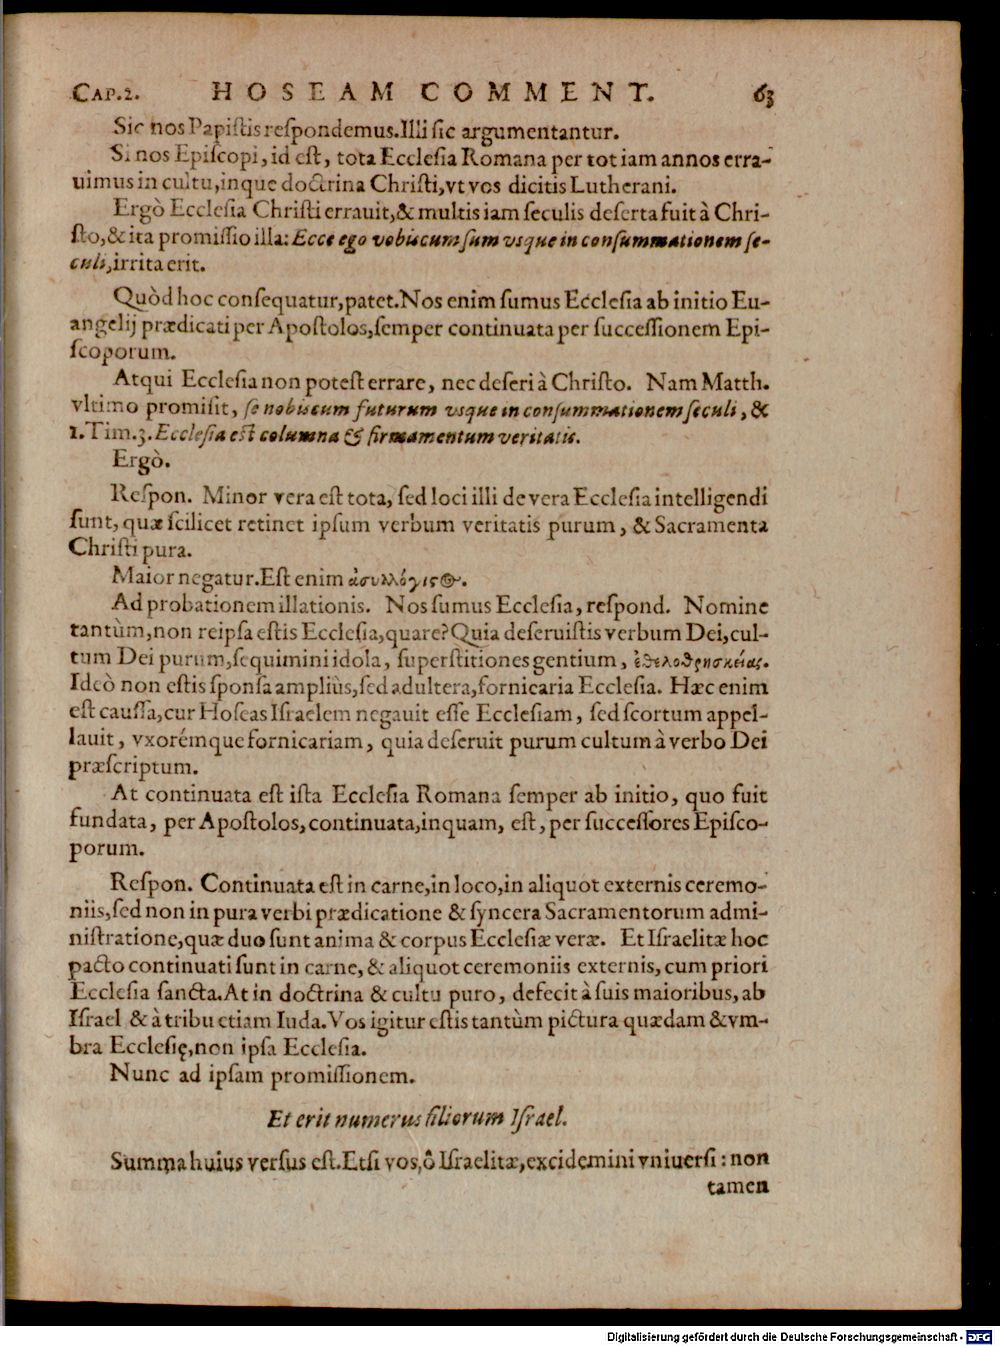 CAP.2. HOSEAM COMMENT. 63
Sic nos Papiſtis reſpondemus. Illi ſic argumentantur.
Si nos Epiſcopi, id eſt, tota Eccleſia Romana per tot iam annos erra-
uimus in cultu, inque doctrina Chriſti, vt vos dicitis Lutherani.
Ergò Eccleſia Chriſti errauit, & multis iam ſeculis deſerta fuit à Chri-
ſto, & ita promiſſio illa: Ecce ego vobiscum ſum vsque in conſummationem ſe-
culi, irrita erit.
Quòd hoc conſequatur, patet. Nos enim ſumus Eccleſia ab initio Eu-
angelij prædicati per Apoſtolos, ſemper continuata per ſucceſſionem Epi-
ſcoporum.
Atqui Eccleſia non poteſt errare, nec deſeri à Chriſto. Nam Matth.
vltimo promiſit, ſe nobiscum futurum vsque in conſummationem ſeculi, &
1. Tim. 3. Eccleſia eſt columna & firmamentum veritatis.
Ergò.
Reſpon. Minor vera eſt tota, ſed loci illi de vera Eccleſia intelligendi
ſunt, quæ ſcilicet retinet ipſum verbum veritatis purum, & Sacramenta
Chriſti pura.
Maior negatur. Eſt enim ἀσυλλόγιστος.
Ad probationem illationis. Nos ſumus Eccleſia, reſpond. Nomine
tantùm, non reipſa eſtis Eccleſia, quare? Quia deſeruiſtis verbum Dei, cul-
tum Dei purum, ſequimini idola, ſuperſtitiones gentium, ἐθελοθρησκείας.
Ideò non eſtis ſponſa ampliùs, ſed adultera, fornicaria Eccleſia. Hæc enim
eſt cauſſa, cur Hoſeas Iſraelem negauit eſſe Eccleſiam, ſed ſcortum appel-
lauit, vxorémque fornicariam, quia deſeruit purum cultum à verbo Dei
præſcriptum.
At continuata eſt iſta Eccleſia Romana ſemper ab initio, quo fuit
fundata, per Apoſtolos, continuata, inquam, eſt, per ſucceſſores Epiſco-
porum.
Reſpon. Continuata eſt in carne, in loco, in aliquot externis ceremo-
niis, ſed non in pura verbi prædicatione & ſyncera Sacramentorum admi-
niſtratione, quæ duo ſunt anima & corpus Eccleſiæ veræ. Et Iſraelitæ hoc
pacto continuati ſunt in carne, & aliquot ceremoniis externis, cum priori
Eccleſia ſancta. At in doctrina & cultu puro, defecit à ſuis maioribus, ab
Iſrael & à tribu etiam Iuda. Vos igitur eſtis tantùm pictura quædam & vm-
bra Eccleſię, non ipſa Eccleſia.
Nunc ad ipſam promiſſionem.
Et erit numerus filiorum Iſrael.
Summa huius verſus eſt. Etſi vos, ô Iſraelitæ, excidemini vniuerſi: non
tamen
Digitalisierung gefördert durch die Deutsche Forschungsgemeinschaft - DFG